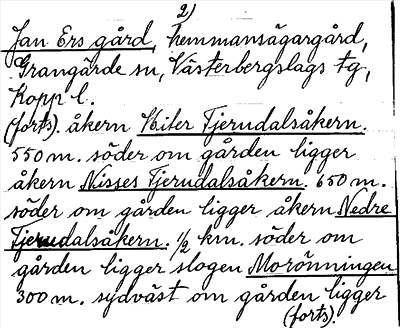 2)
Jan Ers gård, hemmansägargård,
Grangärde sn, Västerbergslags tg,
Kopp l.
(forts). åkern Hiler Tjerndalsåkern.
550 m. söder om gården ligger
åkern Nisses Tjerndalsåkern. 650 m.
söder om gården ligger åkern Nedre
Tjerndalsåkern. 1/2 km. söder om
gården ligger slogen Morönningen
300 m. sydväst om gården ligger
(forts).